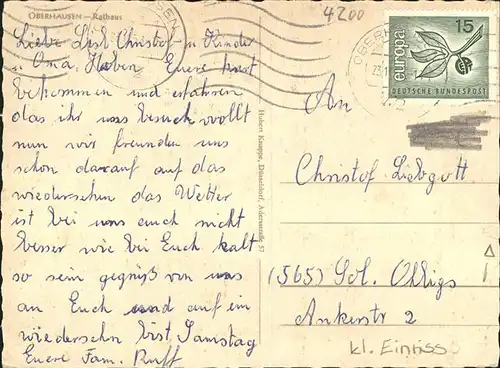 OBERHAUSEN — Rathaus
4200
Liebe Christof u. Kinder
u. Oma. Haben Euere Kart
bekommen und erfahren
das ihr uns besuch wollt
nun wir freunden uns
schon darauf auf das
wiedersehen das Wetter
ist bei uns auch nicht
besser wie bei Euch kalt
so sein gegrüß von uns
an Euch und auf ein
wiedersehn bist Samstag
Euere Fam. Ruff
Hubert Knuppe, Düsseldorf, Adersstraße 57
OBERH
europa
15
DEUTSCHE BUNDESPOST
An
Christof Liebgott
(565) Sol. Ohligs
Ankerstr 2
kl. Einriss